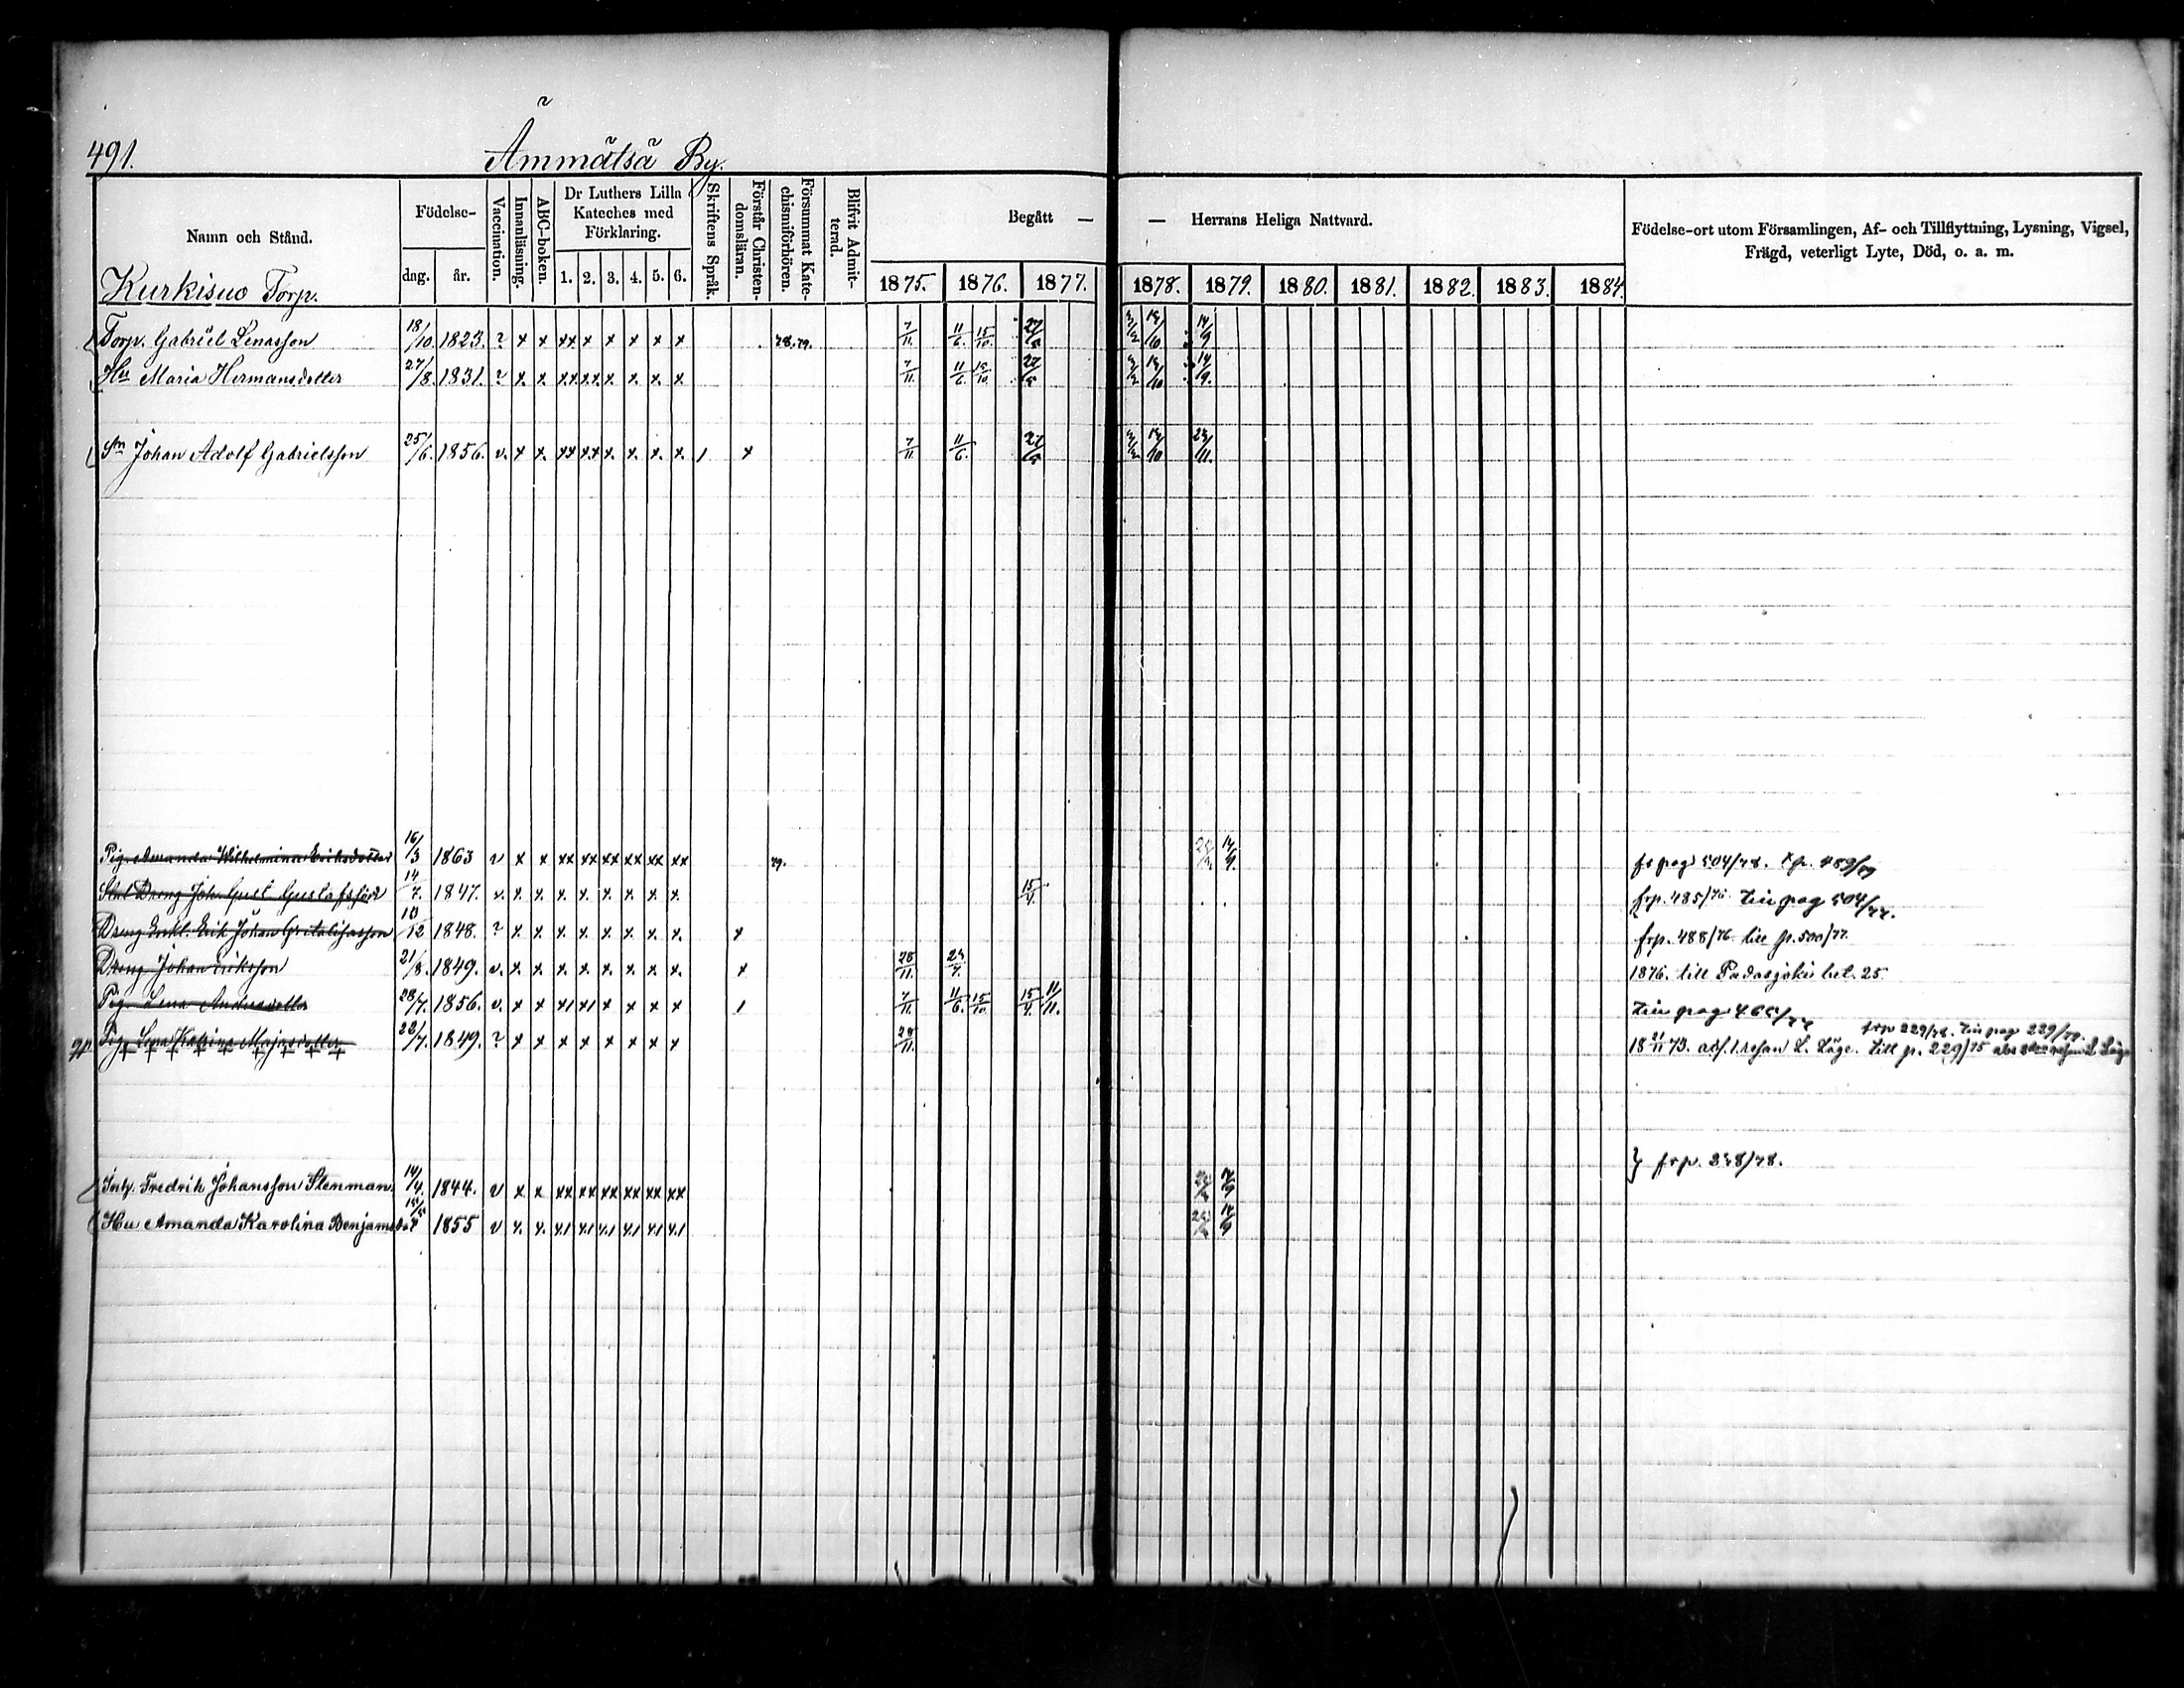 491.
Ämmätsä By.
Namn och Stånd.
Födelse-
dag. år.
Vaccination.
Innanläsning.
ABC-boken.
Dr Luthers Lilla Kateches med Förklaring.
1. 2. 3. 4. 5. 6.
Skriftens Språk.
Förstår Christendomsläran.
Försummat Katechismiförhören.
Blifvit Admitterad.
Begått — — Herrans Heliga Nattvard.
1875. 1876. 1877. 1878. 1879. 1880. 1881. 1882. 1883. 1884.
Födelse-ort utom Församlingen, Af- och Tillflyttning, Lysning, Vigsel,
Frägd, veterligt Lyte, Död, o. a. m.
Kurkisuo Torp.
Torp. Gabriel Lenasson 18/10. 1823. ? x x xx x x x x x 78.79. 7/11. 11/6. 15/10. 14/9
Hu Maria Hermansdotter 27/8. 1831. ? x x. xx xx x. x. x. x. 7/11. 11/6. 15/10. 14/9.
Sn Johan Adolf Gabrielsson 25/6. 1856. v. x x. xx xx x. x. x. x. / x 7/11. 11/6.
Pig. Amanda Wilhelmina Eriksdotter 16/3 1863 v x x xx xx xx xx xx xx 79. 14/9. fr pag 504/78.
Dreng Joh. Gust. Gustafsson 14/7. 1847. v. x x. x. x. x. x. x. x. 15/4. frp. 485/76. Till pag 504/77.
Dreng Erik Johan 10/12 1848. ? x. x. x. x. x. x. x. x. x frp. 488/76 till p. 500/77.
Dreng Johan Eriksson 21/8. 1849. v. x. x. x. x. x. x. x. x. x 28/11. 1876. till Padasjoki bet. 25.
Pig. Lena Andersdotter 28/7. 1856. v. x x x1 x1 x x x x 1 7/11. 11/6. 15/10. 15/4. 11/11. Till pag
Pig. Lena Katrina Majasdotter 22/7. 1849. ? x x x x x x x x 28/11. frp 229/78. Till pag 229/79.
Till p. 229/75
} frp. 238/78.
Inh. Fredrik Johansson Stenman 14/4. 1844. v x x xx xx xx xx xx xx
Hu Amanda Karolina Benjamsdr 1855 v x. x. x1 x1 x1 x1 x1 x1